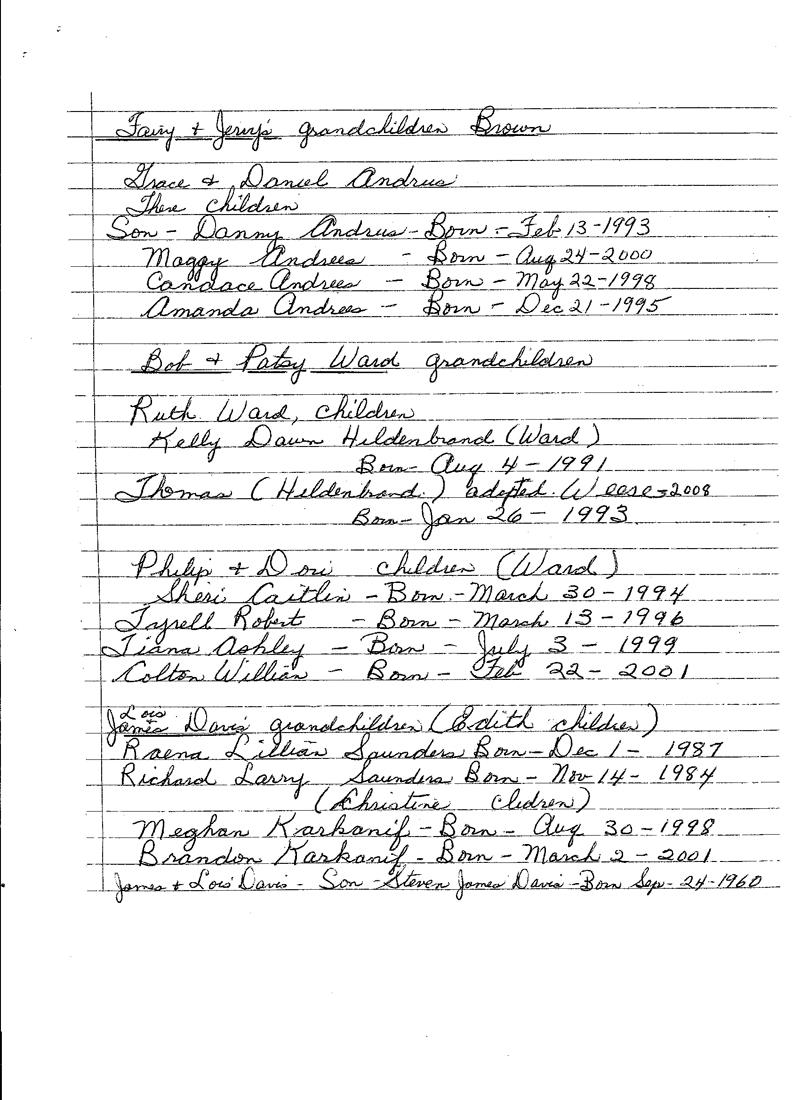 Fairy & Jerry's grandchildren Brown
Grace & Daniel Andrus
There children
Son - Danny Andrus - Born - Feb 13 - 1993
Maggy Andrees - Born - Aug 24 - 2000
Candace Andrees - Born - May 22 - 1998
Amanda Andrees - Born - Dec 21 - 1995
Bob & Patsy Ward grandchildren
Ruth Ward, children
Kelly Dawn Hildenbrand (Ward)
Born - Aug 4 - 1991
Thomas (Hildenbrand) adopted Weese - 2008
Born - Jan 26 - 1993
Philip & Dori children (Ward)
Sheri Caitlin - Born - March 30 - 1994
Tyrell Robert - Born - March 13 - 1996
Tiana Ashley - Born - July 3 - 1999
Colton Willian - Born - Feb 22 - 2001
Lois &
James Davis grandchildren (Edith children)
Raena Lillian Saunders Born - Dec 1 - 1987
Richard Larry Saunders Born - Nov 14 - 1984
(Christine cludren)
Meghan Karkanif - Born - Aug 30 - 1998
Brandon Karkanif - Born - March 2 - 2001
James & Lois Davis - Son - Steven James Davis - Born Sep - 24 - 1960